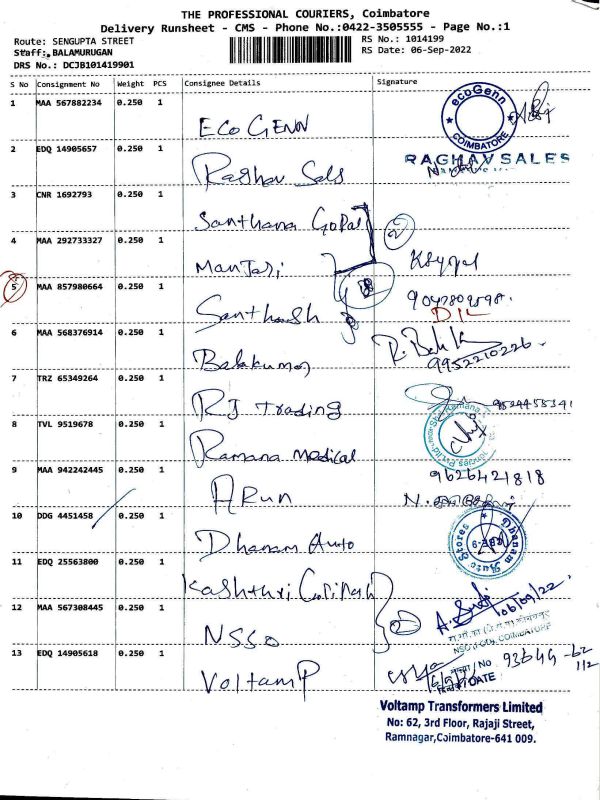 THE PROFESSIONAL COURIERS, Coimbatore
Delivery Runsheet - CMS - Phone No.:0422-3505555 - Page No.:1
Route: SENGUPTA STREET
RS No.: 1014199
Staff: BALAMURUGAN
RS Date: 06-Sep-2022
DRS No.: DCJB101419901
S No Consignment No Weight PCS Consignee Details Signature
1 MAA 567882234 0.250 1 ECO GENN
ecoGenn
COIMBATORE
2 EDQ 14905657 0.250 1 Raghav Sals
RAGHAV SALES
3 CNR 1692793 0.250 1 Santhana Gopal
2
4 MAA 292733327 0.250 1 Manjari
5 MAA 857980664 0.250 1 Santhosh
DIL
6 MAA 568376914 0.250 1 Balakumar
9952210226
7 TRZ 65349264 0.250 1 RJ Trading
8 TVL 9519678 0.250 1 Ramana Medical
9 MAA 942242445 0.250 1 Arun
9626421818
10 DDG 4451458 0.250 1 Dhanam Auto
Dhanam Auto Stores
CBE-9
11 EDQ 25563800 0.250 1
12 MAA 567308445 0.250 1 NSSO
06/09/22
COIMBATORE
13 EDQ 14905618 0.250 1 Voltamp
DATE
Voltamp Transformers Limited
No: 62, 3rd Floor, Rajaji Street,
Ramnagar,Coimbatore-641 009.